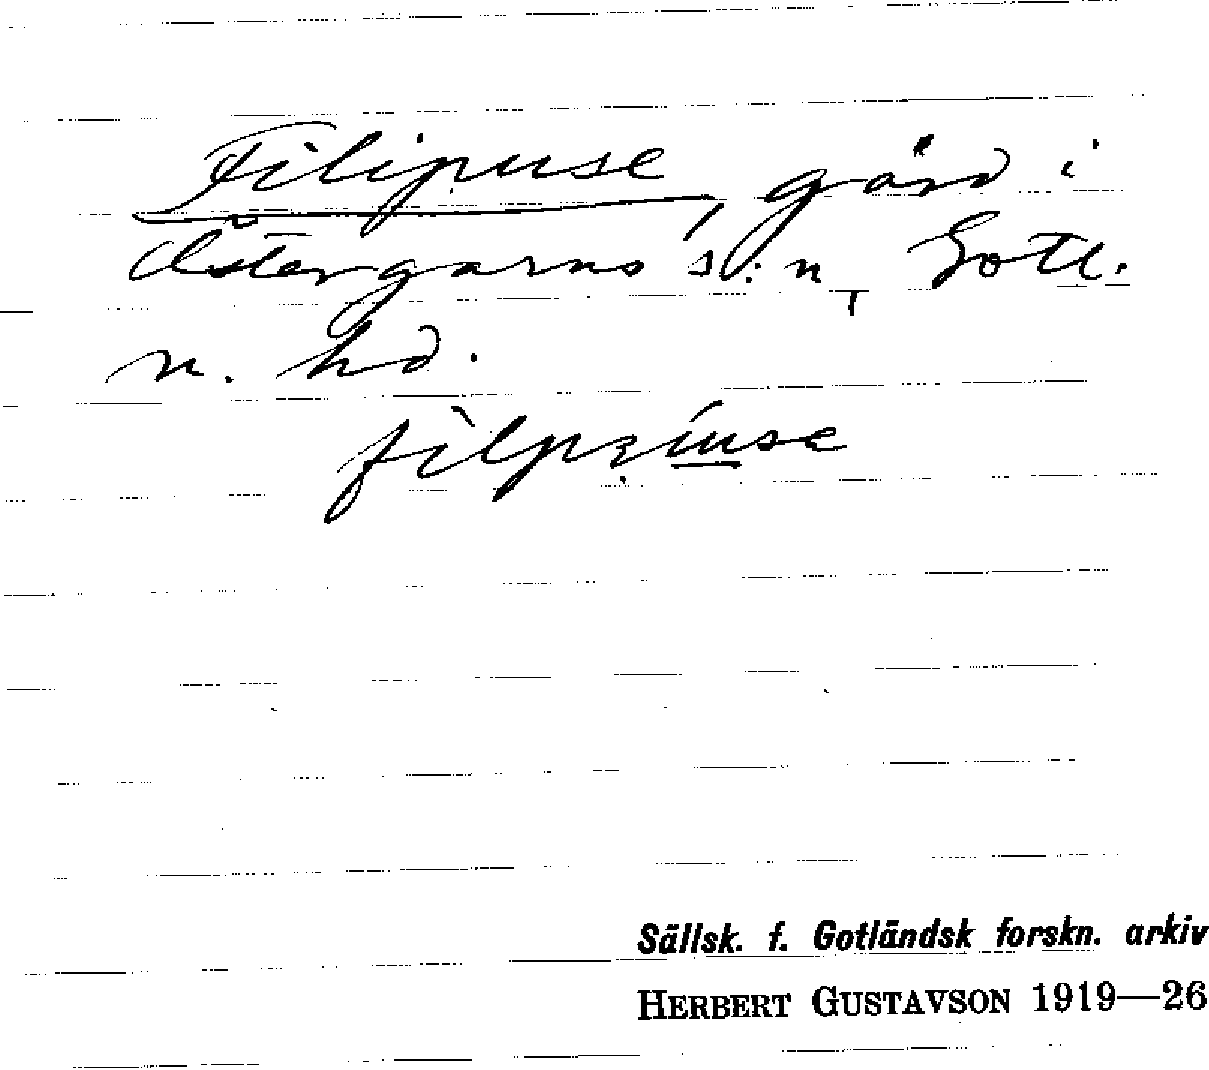 Filipuse, gård i
Östergarns s:n, Gotl.
n. hd.
Sällsk. f. Gotländsk forskn. arkiv
HERBERT GUSTAVSON 1919—26